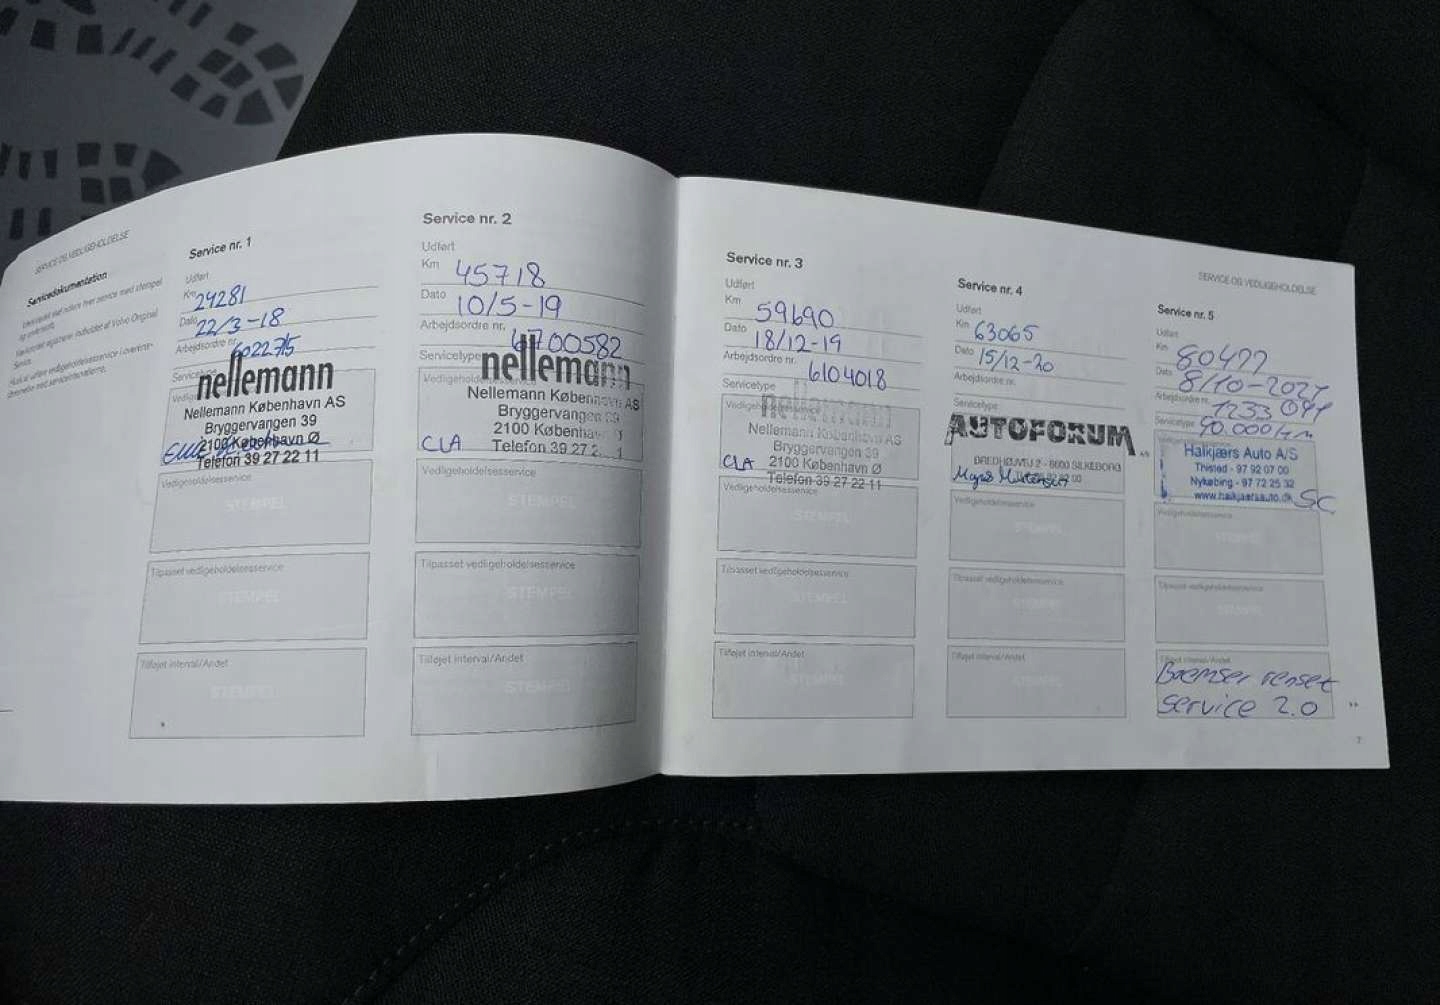 SERVICE OG VEDLIGEHOLDELSE
Servicedokumentation
Service nr. 1
Udført
Km 24281
Dato 22/3-18
Arbejdsordre nr.
nellemann
Nellemann København AS
Bryggervangen 39
2100 København Ø
Telefon 39 27 22 11
Vedligeholdelsesservice
STEMPEL
Tilpasset vedligeholdelsesservice
STEMPEL
Tilføjet interval/Andet
STEMPEL
Service nr. 2
Udført
Km 45718
Dato 10/5-19
Arbejdsordre nr.
Servicetype
nellemann
Nellemann København AS
Bryggervangen 39
2100 København
CLA
Telefon 39 27 2
Vedligeholdelsesservice
STEMPEL
Tilpasset vedligeholdelsesservice
STEMPEL
Tilføjet interval/Andet
STEMPEL
Service nr. 3
Udført
Km 59690
Dato 18/12-19
Arbejdsordre nr. 6104018
Servicetype
Vedligeholdelsesservice
nellemann
Nellemann København AS
Bryggervangen 39
CLA 2100 København Ø
Telefon 39 27 22 11
Vedligeholdelsesservice
STEMPEL
Tilpasset vedligeholdelsesservice
STEMPEL
Tilføjet interval/Andet
STEMPEL
Service nr. 4
Udført
Km 63065
Dato 15/12-20
Arbejdsordre nr.
Servicetype
AUTOFORUM
BREDHØJVEJ 2 - 8600 SILKEBORG
Vedligeholdelsesservice
STEMPEL
Tilpasset vedligeholdelsesservice
STEMPEL
Tilføjet interval/Andet
STEMPEL
SERVICE OG VEDLIGEHOLDELSE
Service nr. 5
Udført
Km 80477
Dato 8/10-2021
Arbejdsordre nr.
Servicetype 90.000 km
Halkjærs Auto A/S
Thisted - 97 92 07 00
Nykøbing - 97 72 25 32
www.halkjaersauto.dk SC
Vedligeholdelsesservice
STEMPEL
Tilpasset vedligeholdelsesservice
STEMPEL
Tilføjet interval/Andet
Bremser renset
service 2.0
7